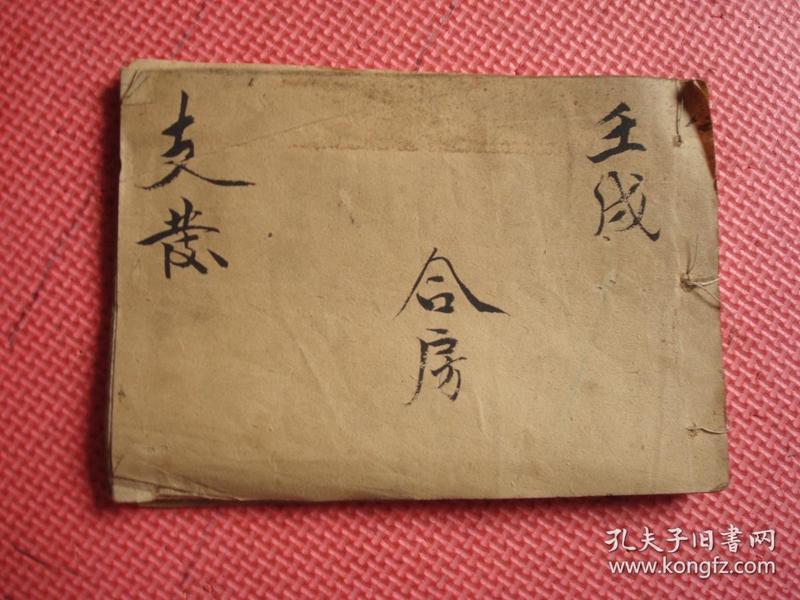 壬戌
合房
支發
孔夫子旧書网
www.kongfz.com